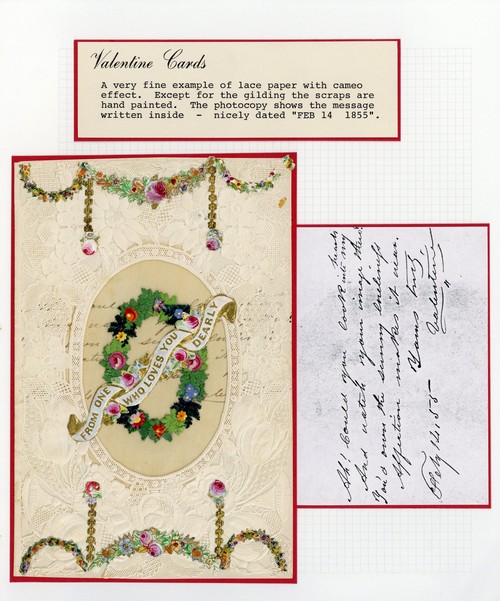 Valentine Cards
A very fine example of lace paper with cameo
effect. Except for the gilding the scraps are
hand painted. The photocopy shows the message
written inside - nicely dated "FEB 14 1855".
FROM ONE
WHO LOVES YOU
DEARLY
Ah! Could you look into my heart
And watch your image there
You'd own the sunny
Affection makes it wear.
Yours truly
Valentine
Feby 14, 55